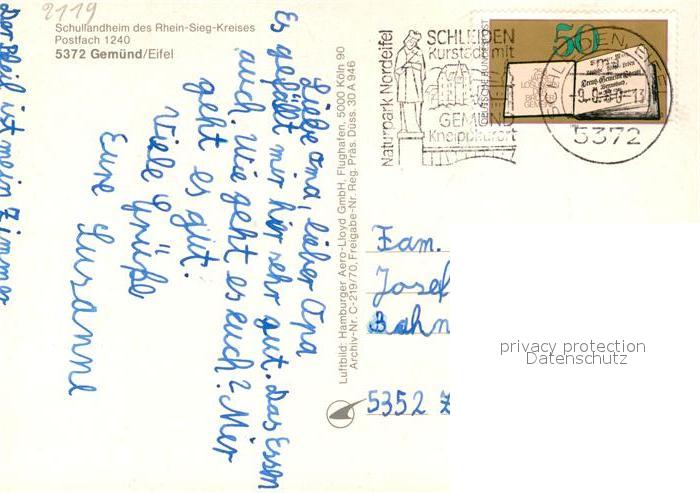 2119
Schullandheim des Rhein-Sieg-Kreises
Postfach 1240
5372 Gemünd/Eifel
Liebe Oma, lieber Opa
Es gefällt mir hier sehr gut. Das Essen
auch. Wie geht es euch? Mir
geht es gut.
Viele Grüße
Eure Susanne
Der Pfeil ist mein Zimmer
Luftbild: Hamburger Aero-Lloyd GmbH, Flughafen, 5000 Köln 90
Archiv-Nr. C-219/70, Freigabe-Nr. Reg. Präs. Düss. 30 A 946
Naturpark Nordeifel
SCHLEIDEN
Kurstadt mit
GEMÜND
Kneippkurort
50
DEUTSCHE BUNDESPOST
SCHLEIDEN, EIFEL
5372
Fam.
Josef
Bahn
5352 Z
privacy protection
Datenschutz